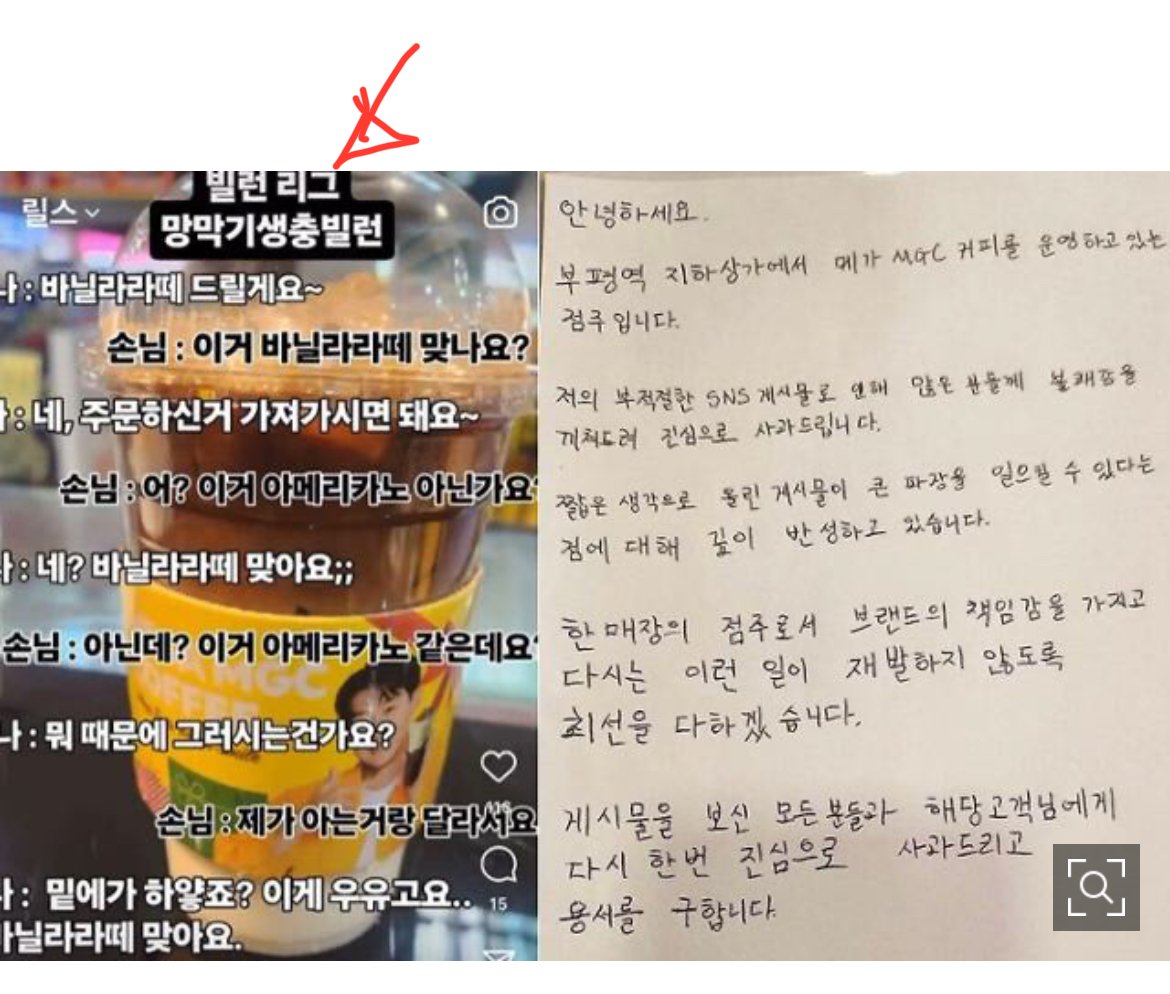 릴스
빌런 리그
망막기생충빌런
나 : 바닐라라떼 드릴게요~
손님 : 이거 바닐라라떼 맞나요?
나 : 네, 주문하신거 가져가시면 돼요~
손님 : 어? 이거 아메리카노 아닌가요?
나 : 네? 바닐라라떼 맞아요;;
손님 : 아닌데? 이거 아메리카노 같은데요?
MGC
나 : 뭐 때문에 그러시는건가요?
손님 : 제가 아는거랑 달라서요
나 : 밑에가 하얗죠? 이게 우유고요..
바닐라라떼 맞아요.
15
안녕하세요.
부평역 지하상가에서 메가 MGC 커피를 운영하고 있는
점주 입니다.
저의 부적절한 SNS 게시물로 인해 많은 분들께 불쾌감을
끼쳐드려 진심으로 사과드립니다.
짧은 생각으로 올린 게시물이 큰 파장을 일으킬 수 있다는
점에 대해 깊이 반성하고 있습니다.
한 매장의 점주로서 브랜드의 책임감을 가지고
다시는 이런 일이 재발하지 않도록
최선을 다하겠습니다.
게시물을 보신 모든 분들과 해당고객님에게
다시 한번 진심으로 사과드리고
용서를 구합니다.